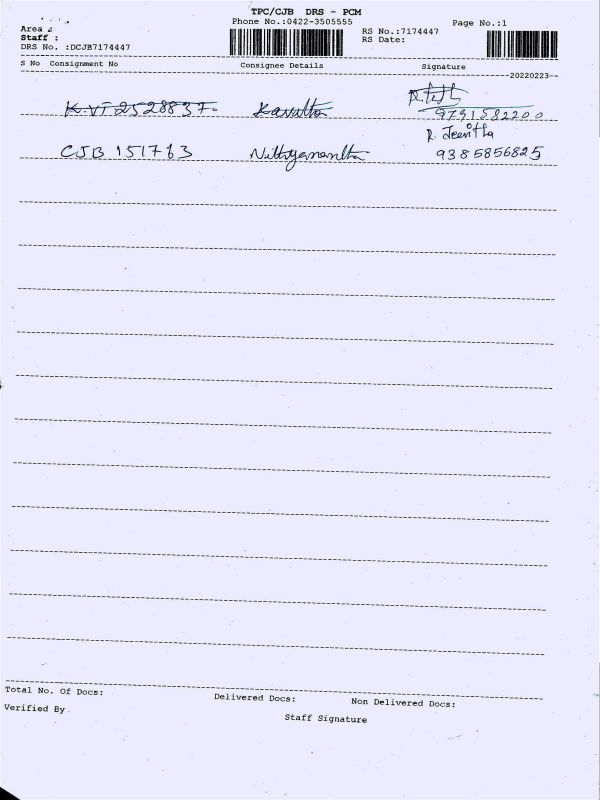 TPC/CJB DRS - PCM
Phone No.:0422-3505555
Page No.:1
Area
Staff :
DRS No. :DCJB7174447
RS No.:7174447
RS Date:
S No Consignment No Consignee Details Signature
20220223
K.VT2528837. Kavitha
9791582200
R. Jeevitha
CJB 151763 Nithyanantha 9385856825
Total No. Of Docs: Delivered Docs: Non Delivered Docs:
Verified By
Staff Signature